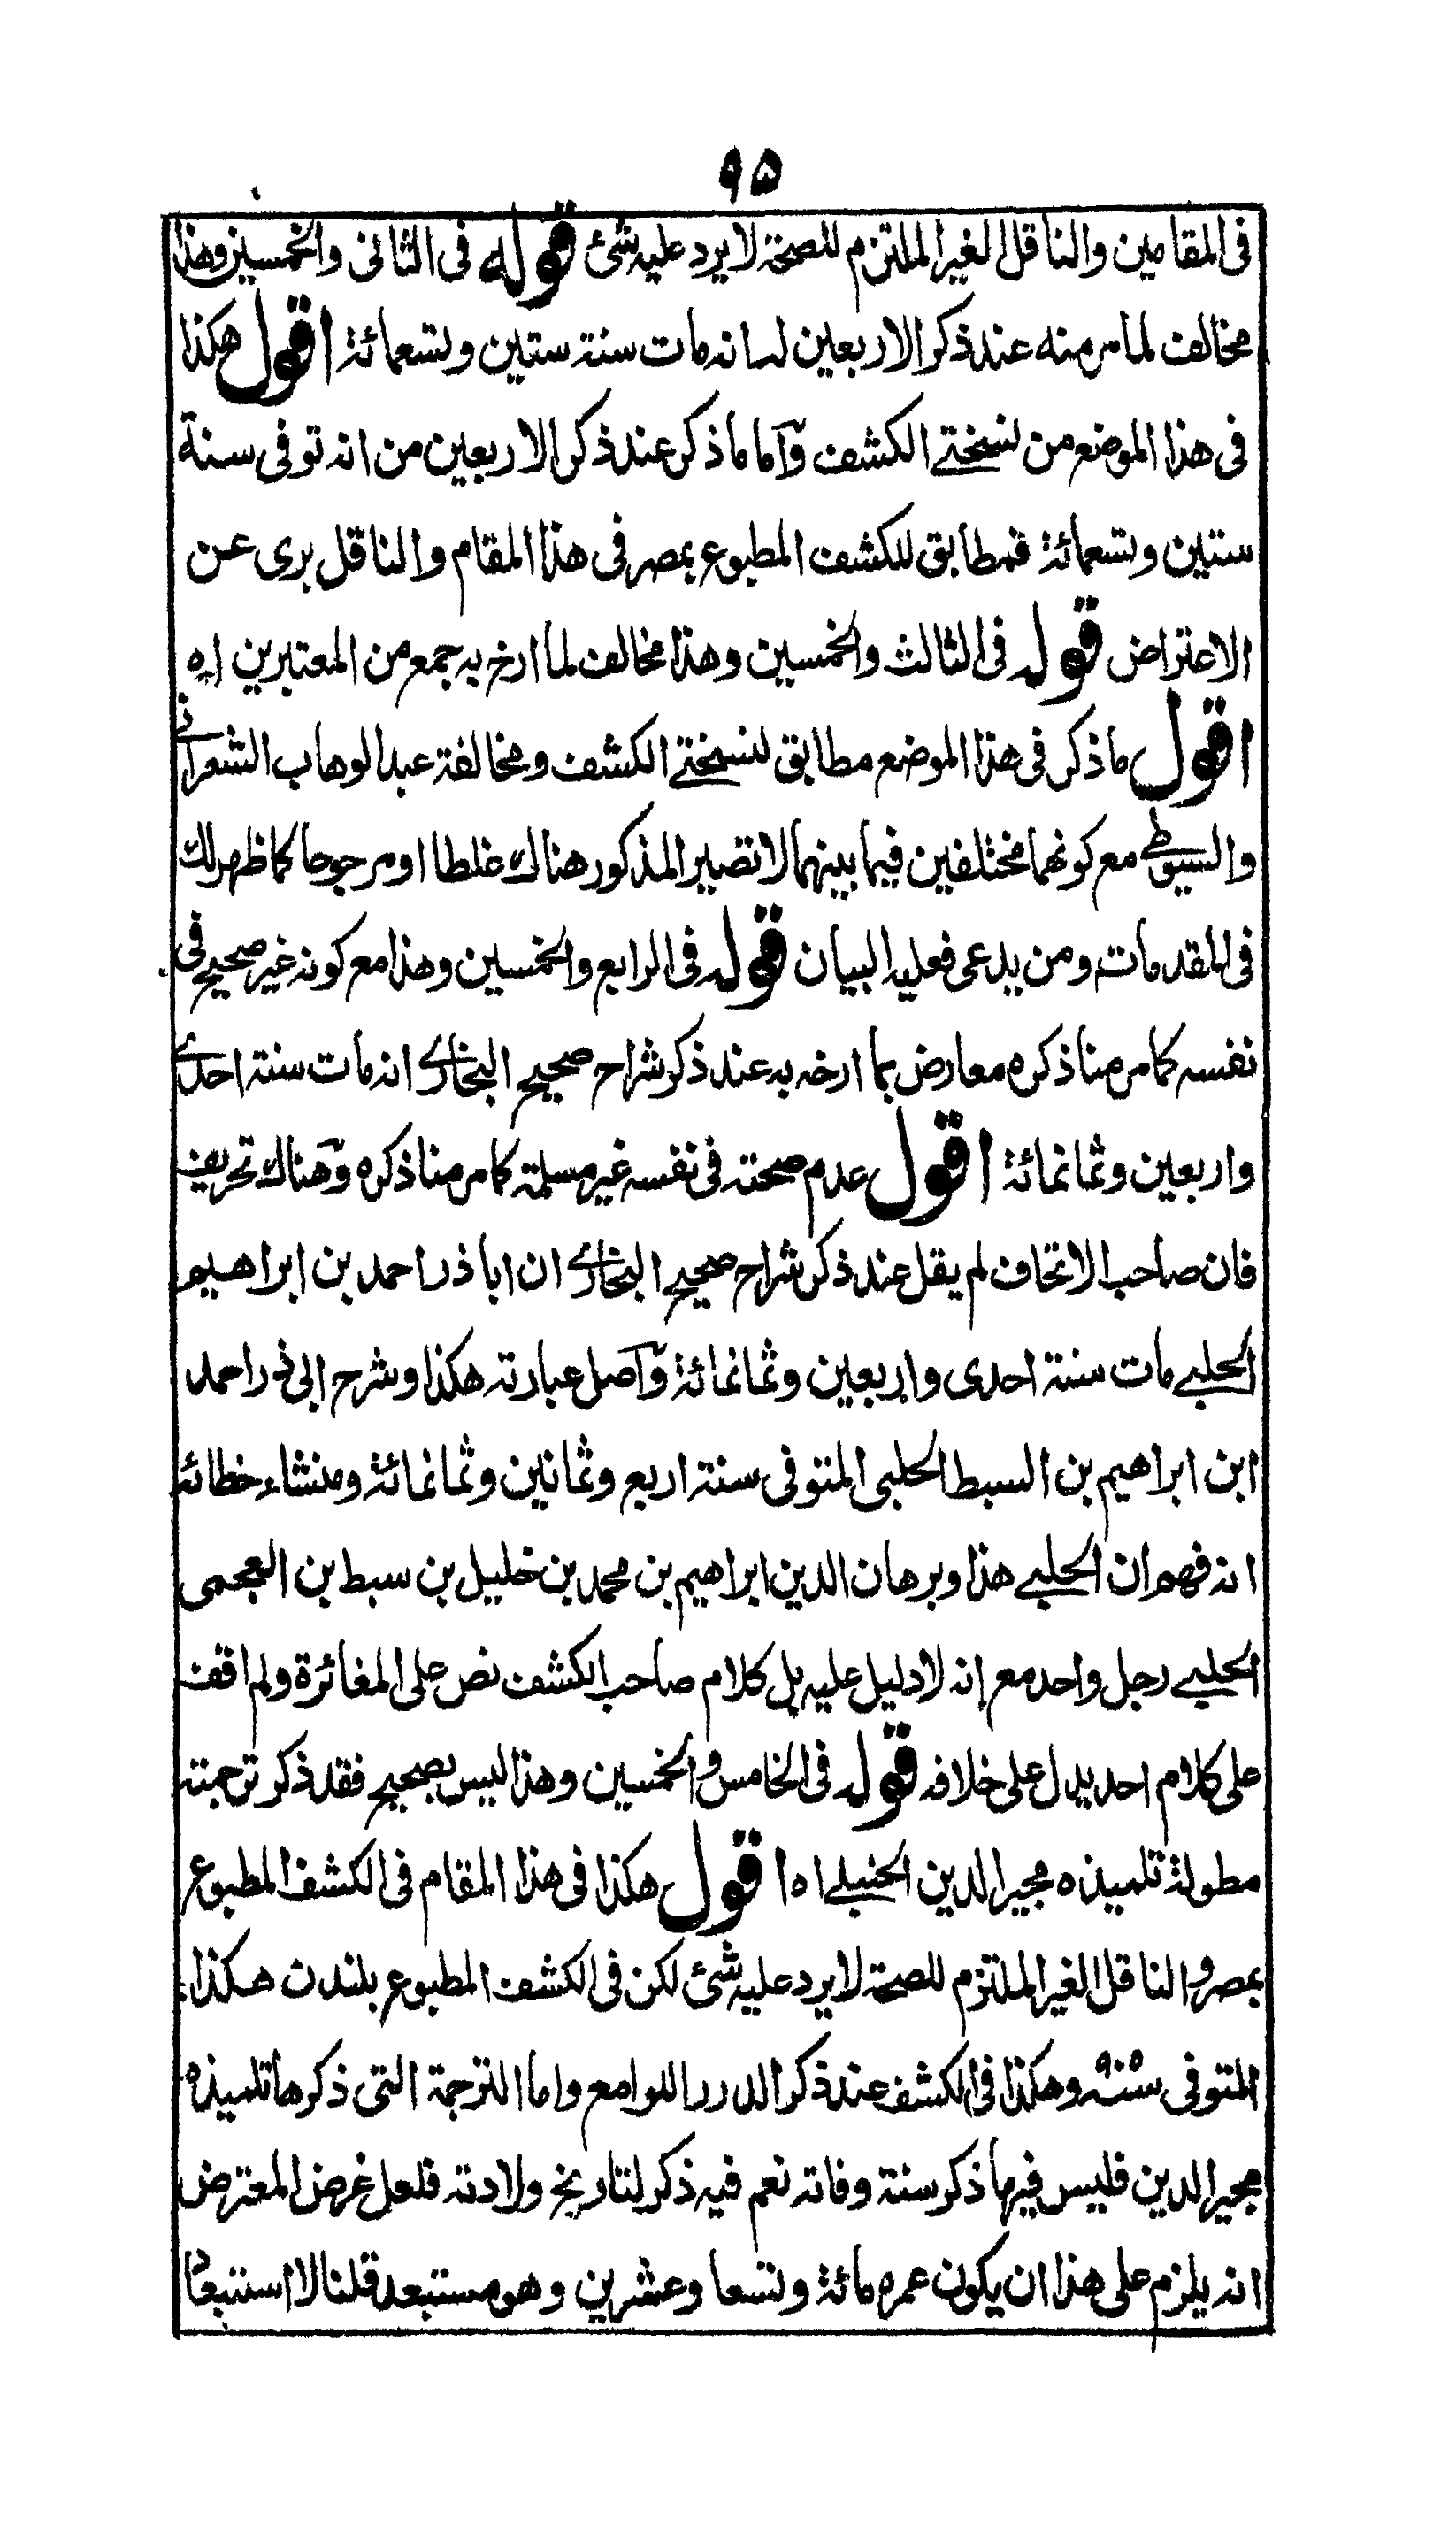 ٩٥
فى المقامين والناقل الغير الملتزم للصحة لا يرد عليه شئ قوله فى الثانى والخمسين وهذا
مخالف لما مر منه عند ذكر الاربعين له انه مات سنة ستين وتسعمائة اقول هكذا
فى هذا الموضع من نسختے الكشف وآما ما ذكر عند ذكر الاربعين من انه توفى سنة
ستين وتسعمائة فمطابق للكشف المطبوع بمصر فى هذا المقام والناقل برى عن
الاعتراض قوله فى الثالث والخمسين وهذا مخالف لما ارخ به جمع من المعتبرين اه
اقول ما ذكر فى هذا الموضع مطابق لنسختے الكشف ومخالفة عبد الوهاب الشعرانے
والسيوطے مع كونهما مختلفين فيما بينهما لا تصير المذكور هناك غلطا او مرجوحا كما ظهر لك
فى المقدمات ومن يدعى فعليه البيان قوله فى الرابع والخمسين وهذا مع كونه غير صحيح فى
نفسه كما مر منا ذكره معارض بما ارخه به عند ذكر شراح صحيح البخارے انه مات سنة احدے
واربعين وثمانمائة اقول عدم صحته فى نفسه غير مسلمة كما مر منا ذكره وهناك تحريف
فان صاحب الاتحاف لم يقل عند ذكر شراح صحيح البخارے ان ابا ذر احمد بن ابراهيم
الحلبے مات سنة احدى واربعين وثمانمائة وآصل عبارته هكذا وشرح ابى ذر احمد
ابن ابراهيم بن السبط الحلبى المتوفى سنة اربع وثمانين وثمانمائة ومنشاء خطائه
انه فهم ان الحلبے هذا وبرهان الدين ابراهيم بن محمد بن خليل بن سبط بن العجمى
الحلبے رجل واحد مع انه لا دليل عليه بل كلام صاحب الكشف نص على المغائرة ولم اقف
على كلام احد يدل على خلافه قوله فى الخامس والخمسين وهذا ليس بصحيح فقد ذكر ترجمته
مطولة تلميذه مجير الدين الحنبلے اه اقول هكذا فى هذا المقام فى الكشف المطبوع
بمصر والناقل الغير الملتزم للصحة لا يرد عليه شئ لكن فى الكشف المطبوع بلندن هكذا
المتوفى سنة وهكذا فى الكشف عند ذكر الدرر اللوامع واما الترجمة التى ذكرها تلميذه
مجير الدين فليس فيها ذكر سنة وفاته نعم فيه ذكر لتاريخ ولادته فلعل غرض المعترض
انه يلزم على هذا ان يكون عمره مائة وتسعا وعشرين وهو مستبعد قلنا لا استبعاد